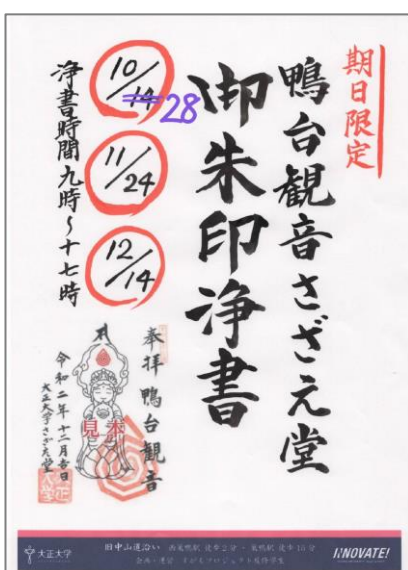 期日限定
鴨台観音さざえ堂
御朱印浄書
10/14 28
11/24
12/14
浄書時間九時~十七時
奉拝 鴨台観音
見本
令和二年十二月吉日
大正大学さざえ堂
大正大学
旧中山道沿い 西巣鴨駅 徒歩2分・巣鴨駅 徒歩15分
INNOVATE!